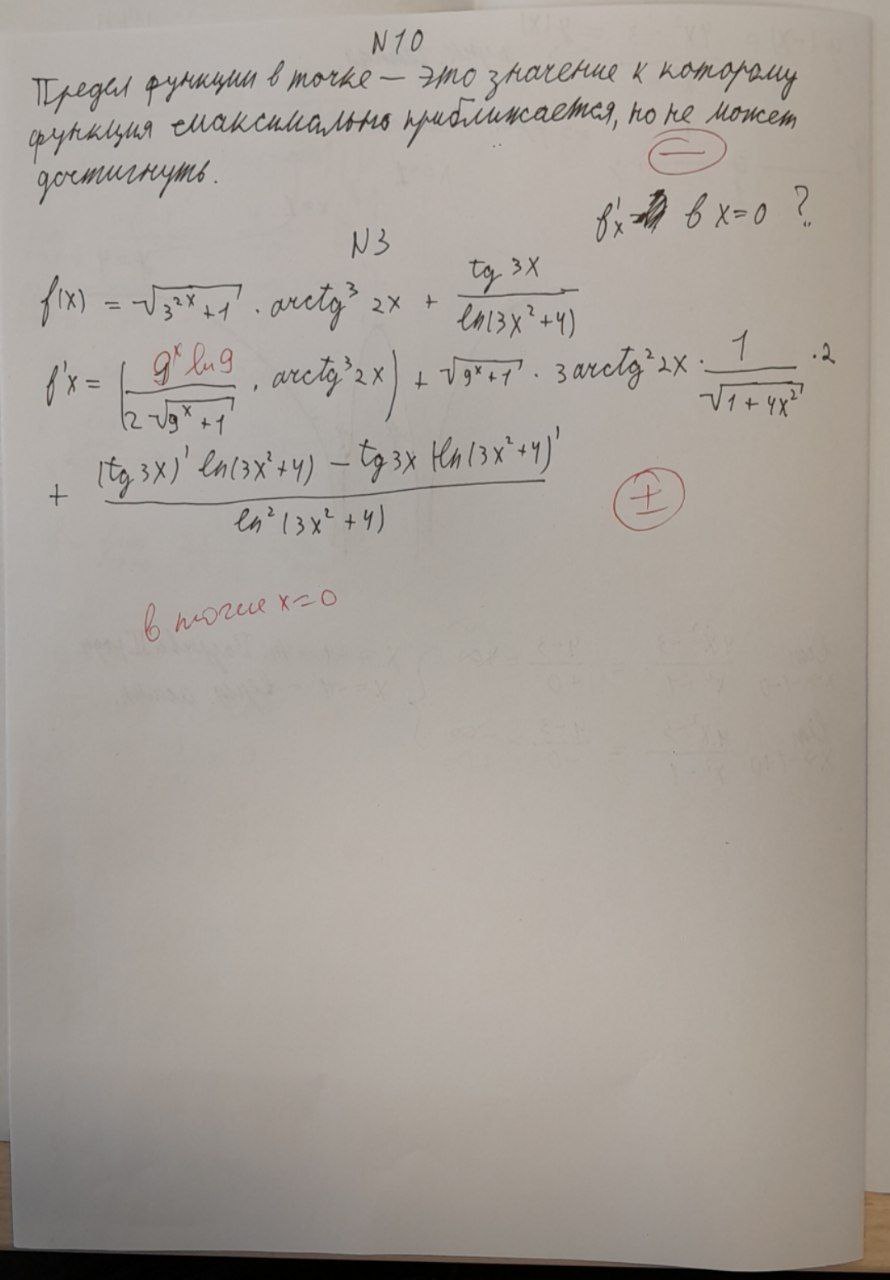 N10
Предел функции в точке — это значение к которому
функция максимально приближается, но не может
достигнуть.
−
f'x = в x=0 ?
N3
f(x) = √(3^(2x)+1) · arctg³ 2x + tg 3x / ln(3x²+4)
f'x = (9^x ln9 / 2√(9^x+1) · arctg³ 2x) + √(9^x+1) · 3arctg² 2x · 1/√(1+4x²) · 2
+ ((tg 3x)' ln(3x²+4) − tg 3x (ln(3x²+4))' / ln²(3x²+4)
±
в точке x=0